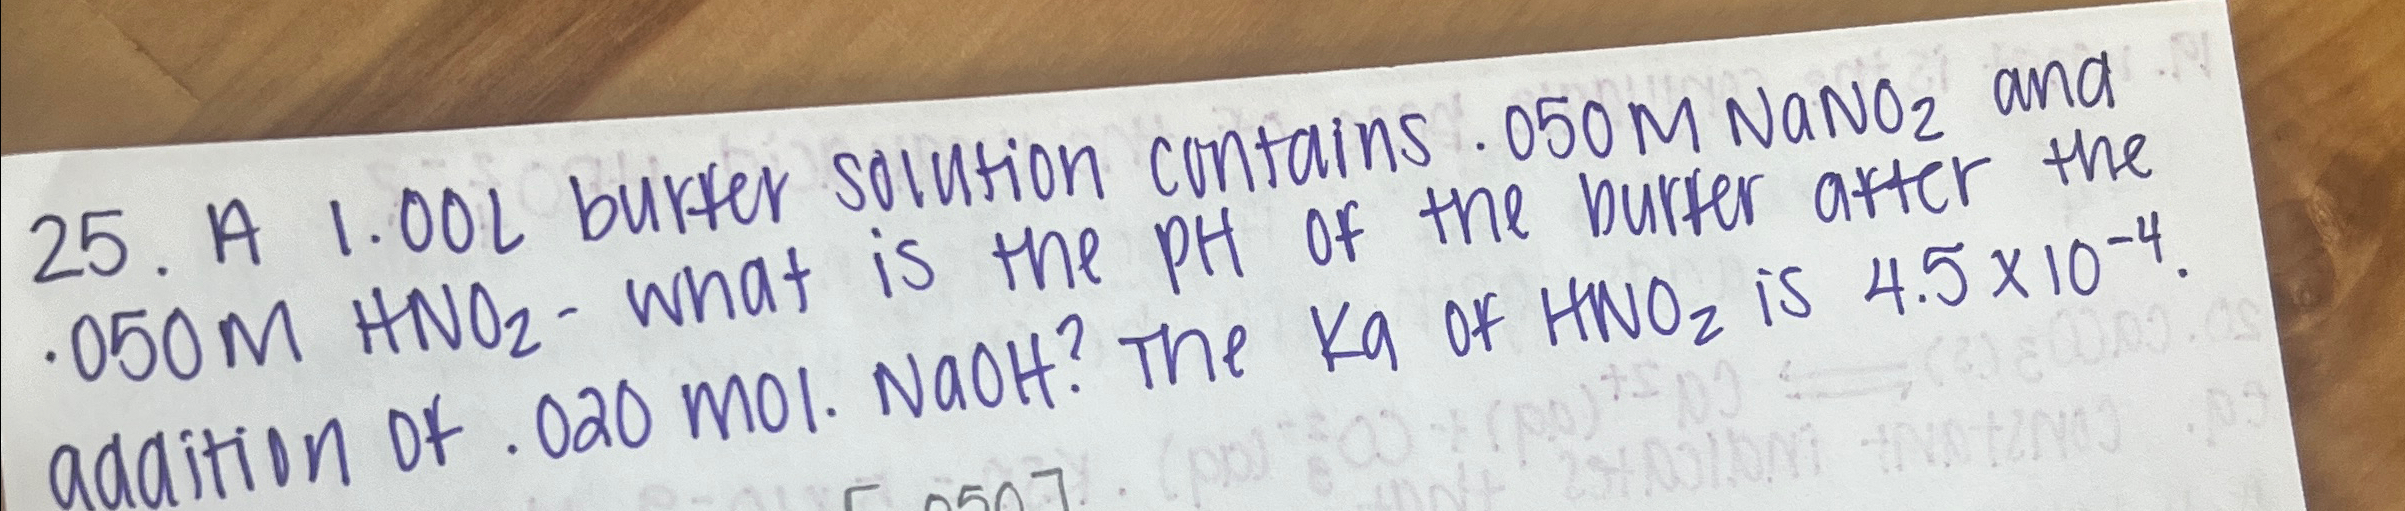 25. A 1.00L buffer solution contains .050M NaNO₂ and
.050M HNO₂- what is the pH of the buffer after the
addition of .020 mol. NaOH? The Ka of HNO₂ is 4.5×10⁻⁴.